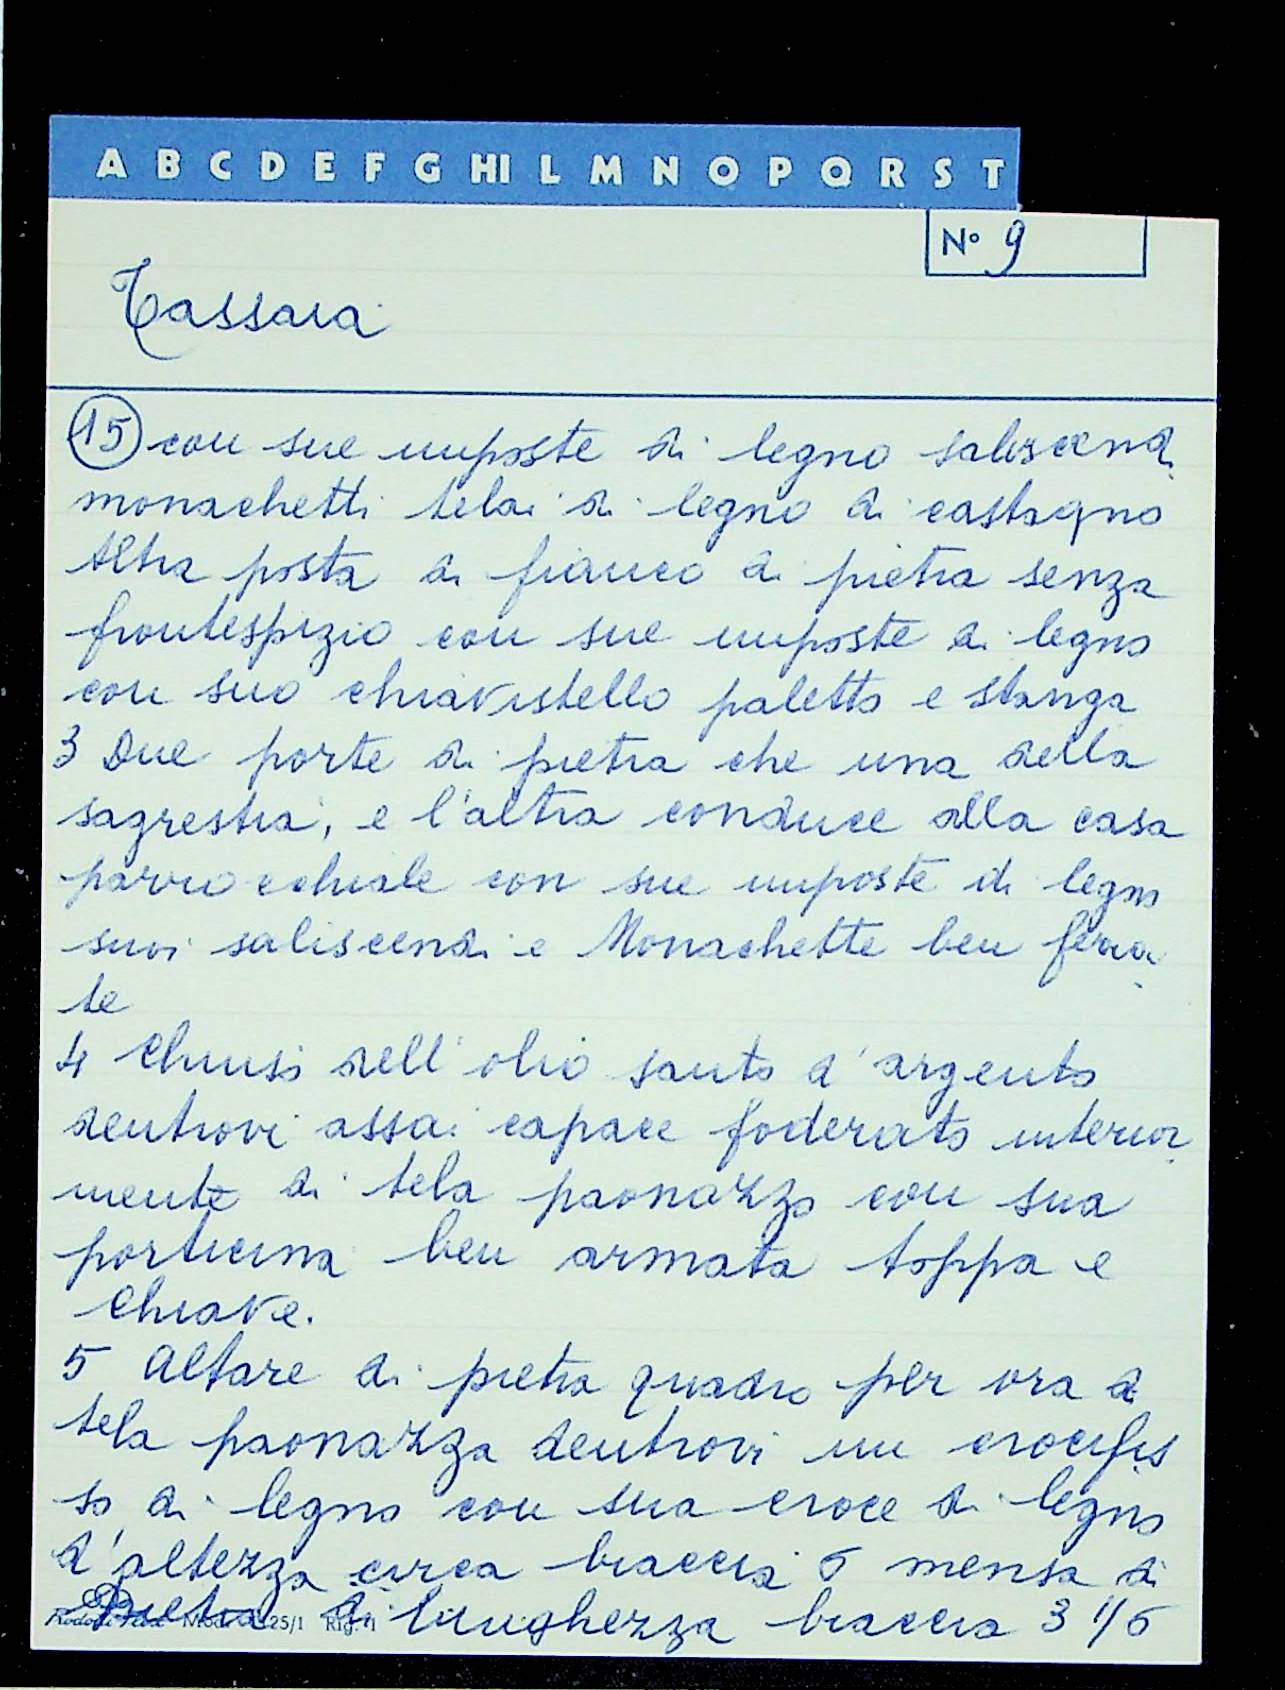 A B C D E F G HI L M N O P Q R S T
N° 9
Tassaia
15 con sue imposte di legno saliscendi
monachetti telai di legno di castagno
Altra posta di fianco di pietra senza
frontespizio con sue imposte di legno
con suo chiavistello paletto e stanga
3 Due porte di pietra che una della
sagrestia, e l'altra conduce alla casa
parrocchiale con sue imposte di legno
suoi saliscendi e Monachette ben ferra
te
4 Chiuso dell'olio santo d'argento
dentrovi assai capace foderato interior
mente di tela paonazzo con sua
porticina ben armata toppa e
chiave.
5 Altare di pietra quadro per ora di
tela paonazza dentrovi un crocifis
so di legno con sua croce di legno
d'altezza circa braccia 6 mensa di
Pietra di lunghezza braccia 3 1/6
25/1 Rig. 11